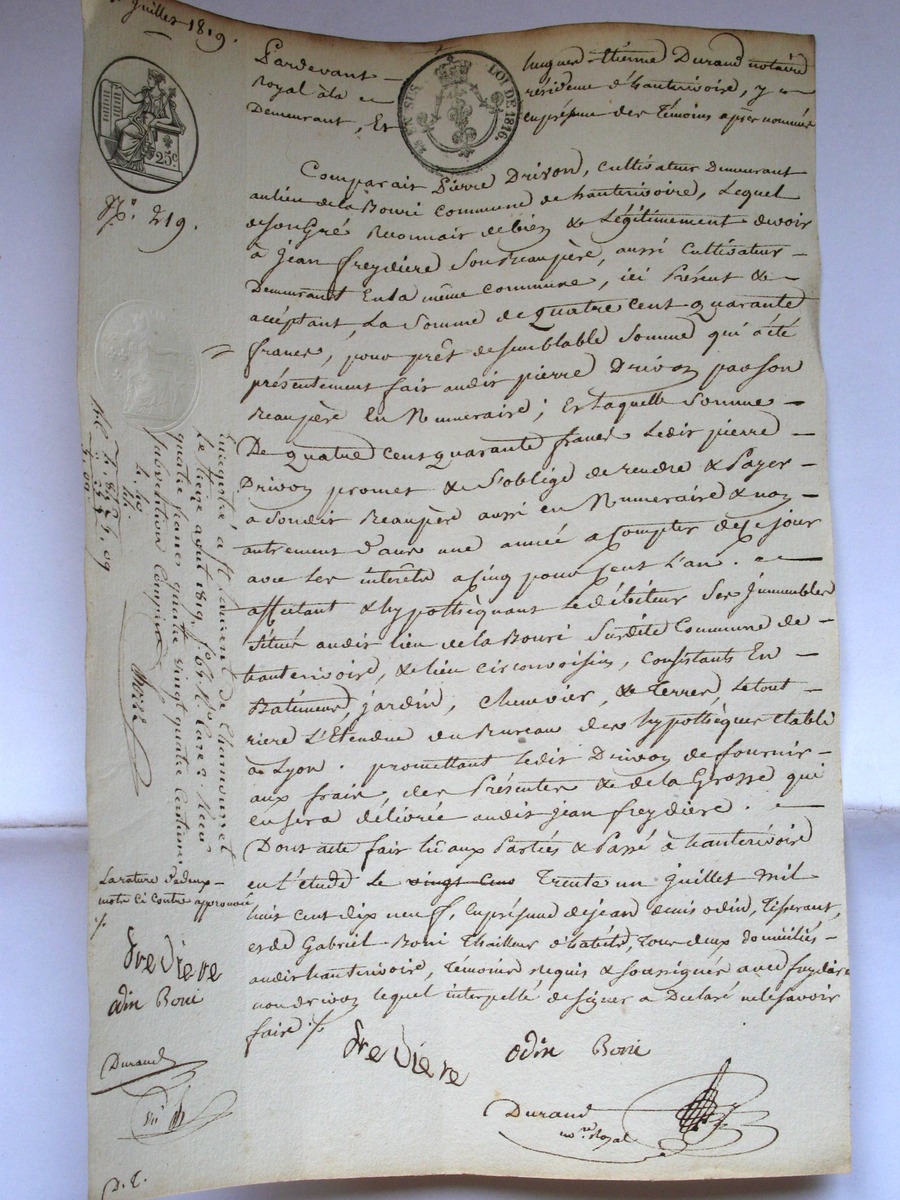 Juillet 1819.
25 EN SUS
LOI DE 1816.
25.c
N.o 219.
Pardevant hugues Etienne Durand notaire
royal à la résidence d'hauterivoire, y
Demeurant, Et en présence des Témoins après nommés
Comparait Pierre Drivon, Cultivateur Demeurant
au lieu de la Bouri Commune de hauterivoire, Lequel
de son Gré Reconnait de bien & Légitimement devoir
à Jean freydiere Son Beaupère, aussi Cultivateur
Demeurant En la même Commune, ici Présent &
acceptant, La Somme de quatre cent quarante
francs, pour prêt de semblable Somme qui a été
présentement fait audit pierre Drivon par son
Beaupère En Numeraire; Et Laquelle Somme
De quatre cent quarante francs Ledit pierre
Drivon promet & s'oblige de rendre & Payer
a Sondit Beaupère aussi en Numeraire & non
autrement dans une année a Compter de ce jour
avec les intérêts a Cinq pour Cent L'an.
affectant & hypothèquant Le débiteur Ses Immeubles
Situés audit lieu de la Bouri Susdite Commune de
hauterivoire, & lieu circonvoisins, Consistants En
Batiments, Jardin, Chenevier, & Terres, Le tout
riere L'Etendue du Bureau des hypothèques établi
a Lyon. promettant Ledit Drivon de fournir
aux frais des Présentes & de la Grosse qui
en sera délivrée audit Jean freydiere.
Dont acte fait lû aux Parties & Passé à hauterivoire
en l'étude Le vingt cinq Trente un Juillet Mil
huit cent dix neuff, En présence de Jean denis odin, Tisserant,
et de Gabriel Bori Thailleur d'habits, Tous deux domiciliés
audit hauterivoire, Témoins Requis & Soussignés avec freydiere
non drivon lequel interpellé de signer a Déclaré ne le savoir
faire ./.
frediere odin Bori
Durand
no.re Royal
Enregistré à St Laurent de Chamousset
Le treize août 1819. f.o 64 R. Cases Reçu
quatre francs quatre vingt quatre Centimes
Subvention Comprise
4. 40
44
La rature de deux
mots ci contre approuvée
./.
fredieve
odin Bori
Durand
D. E.